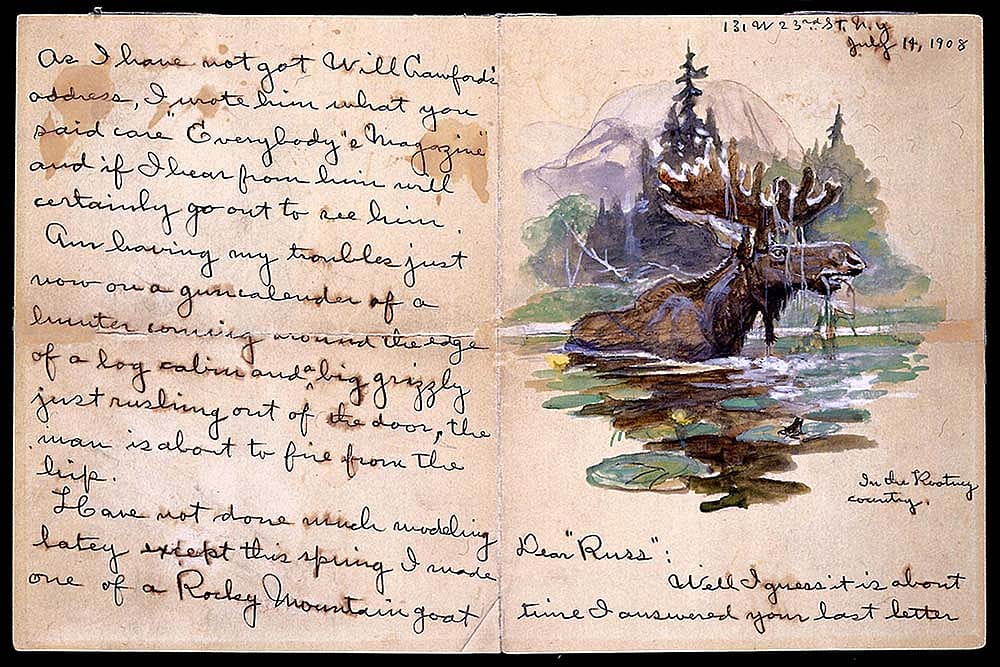 As I have not got Will Crawford's
address, I wrote him what you
said care "Everybody's Magazine"
and if I hear from him will
certainly go out to see him.
Am having my troubles just
now on a gun calender of a
hunter coming around the edge
of a log cabin and a big grizzly
just rushing out of the door, the
man is about to fire from the
hip.
Have not done much modeling
latey except this spring I made
one of a Rocky Mountain goat
131 W 23rd St. N.Y
July 14, 1908
In the Kootney
country.
Dear "Russ":
Well I guess it is about
time I answered your last letter